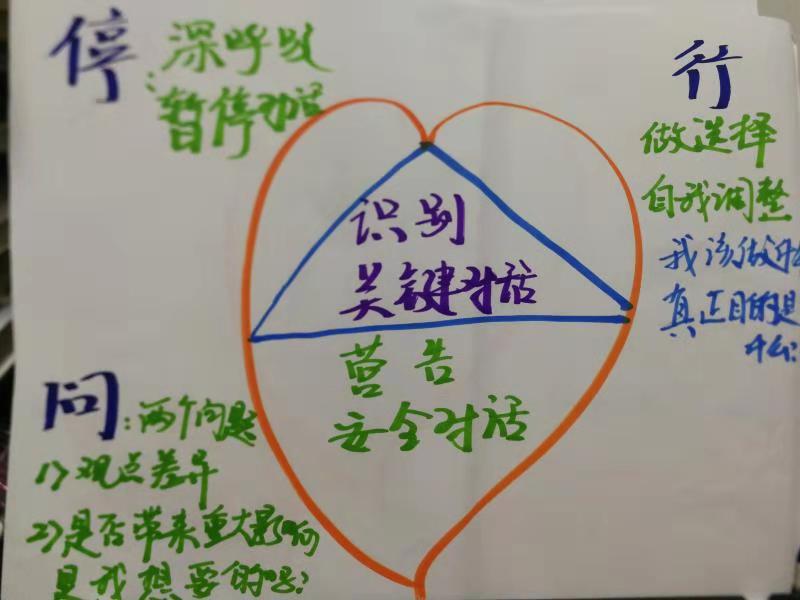 停：深呼吸
暂停对话
行
做选择
自我调整
我该做什么
真正目的是
什么？
识别
关键对话
营告
安全对话
问：两个问题
1）观点差异
2）是否带来重大影响
是我想要的吗？